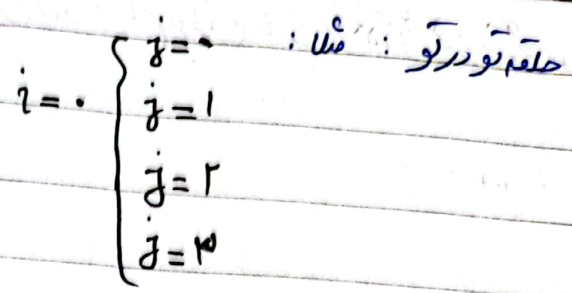 حلقه تو در تو : مثلا :
j = ۰
i = ۰
j = ۱
j = ۲
j = ۳